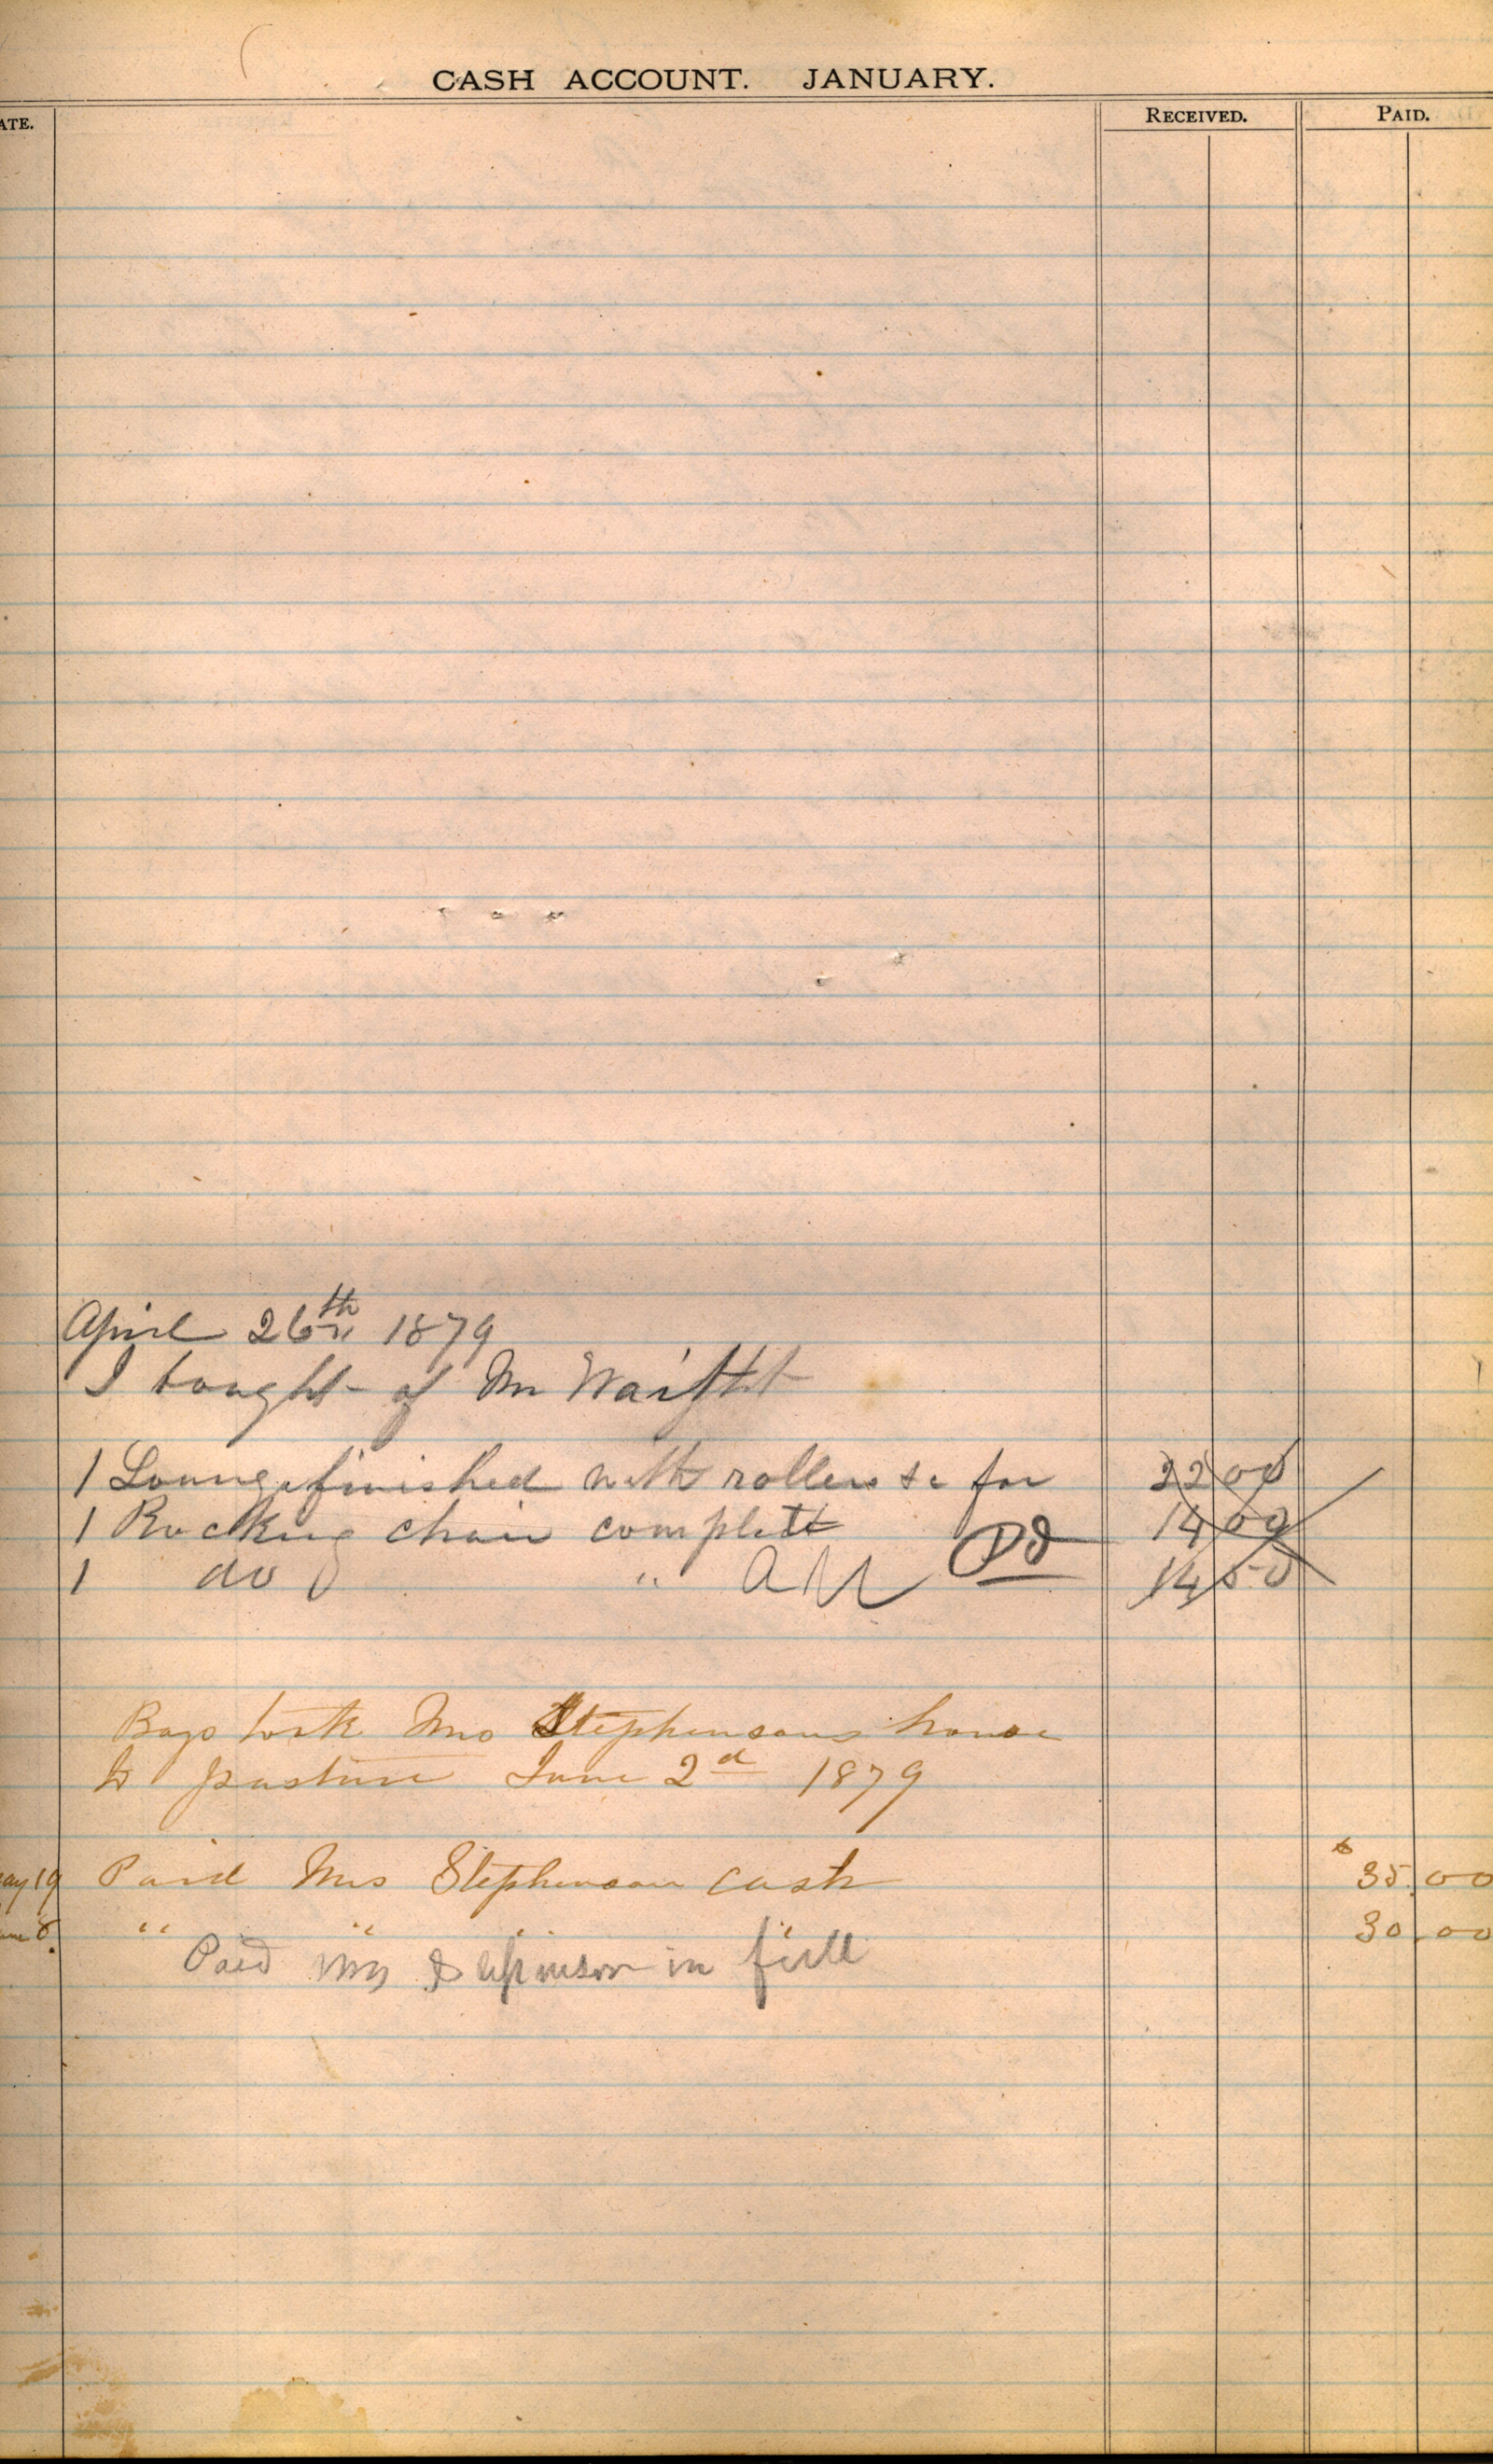 CASH ACCOUNT. JANUARY.
ATE. RECEIVED. PAID.
April 26th 1879
I bought of Mr
1 Lounge finished with rollers &c for 22 00
1 Rocking chair complete Pd 14 00
1 do " All 14 50
Boys took Mrs Stephensons horse
to pasture June 2d 1879
ay 19 Paid Mrs Stephenson cash $ 35.00
une 8. " " " " 30.00
Paid Mrs Stephenson in full